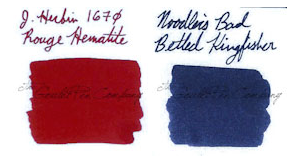 J. Herbin 1670
Rouge Hematite
Noodler's Bad
Belted Kingfisher